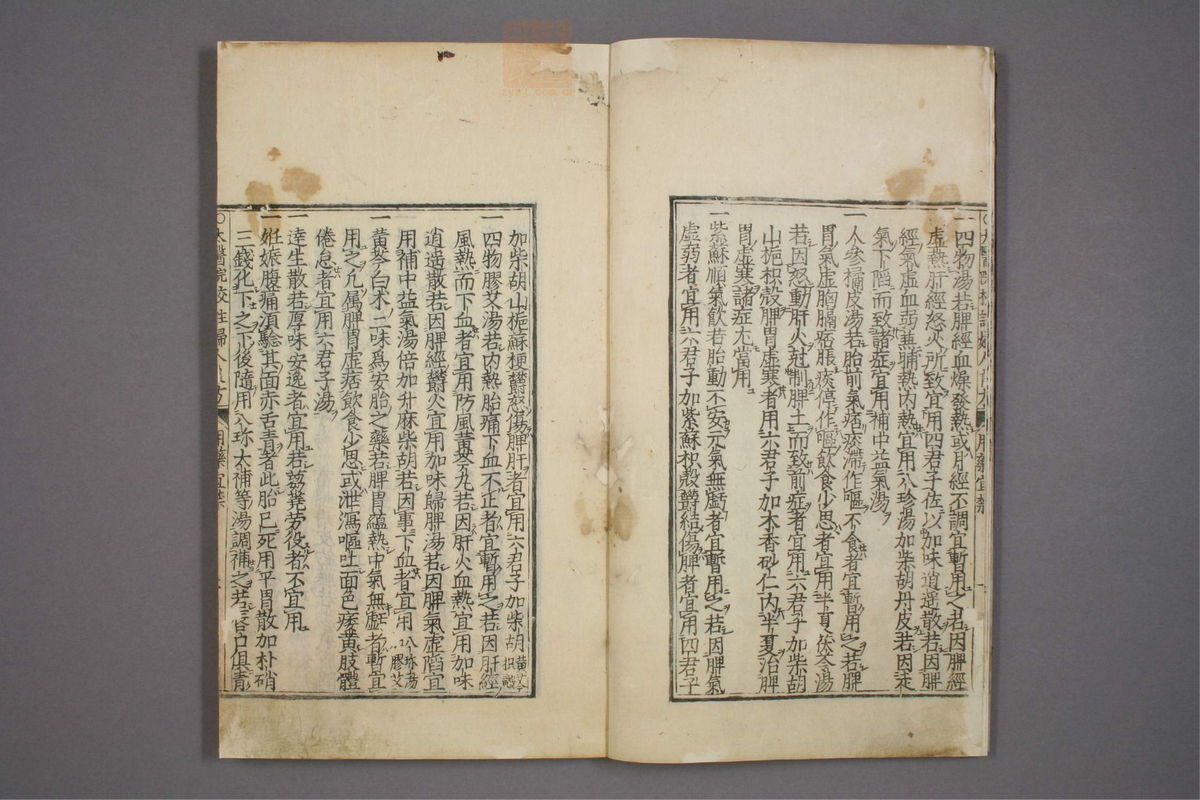 一四物湯若脾經血燥發熱或月經不調宜暫用之若因脾經
虛熱肝經怒火所致宜用四君子佐以加味逍遙散若因脾
經氣虛血弱無晡熱內熱宜用八珍湯加柴胡丹皮若因
氣下陷而致諸症宜用補中益氣湯
一人參橘皮湯若胎前氣痞痰滯作嘔不食者宜暫用之若脾
胃氣虛胸膈痞脹痰停作嘔飲食少思者宜用半夏茯苓湯
若因怒動肝火制脾土而致前症者宜用六君子加柴胡
山梔枳殼脾胃虛寒者用六君子加木香砂仁內半夏治脾
胃虛寒諸症尤當用
一紫蘇順氣飲若胎動不安元氣無虧者宜暫用之若因脾氣
虛弱者宜用六君子加紫蘇枳殼鬱結傷脾者宜用四君子
加柴胡山梔蘇梗鬱怒傷脾肝者宜用六君子加柴胡黃芩枳殼
一四物膠艾湯若內熱胎痛下血不止者宜暫用之若因肝經
風熱而下血者宜用防風黃芩丸若因肝火血熱宜用加味
逍遙散若因脾經鬱火宜用加味歸脾湯若因脾氣虛陷宜
用補中益氣湯倍加升麻柴胡若因事下血者宜用八珍湯膠艾
一黃芩白朮二味爲安胎之藥若脾胃蘊熱中氣無虧者暫宜
用之凡属脾胃虛痞飲食少思或泄瀉嘔吐面色痿黃肢體
倦怠者宜用六君子湯
一達生散若厚味安逸者宜用若芻蕘劳役者不宜用
一姙娠腹痛湏驗其面赤舌青者此胎已死用平胃散加朴硝
三錢化下之下後隨用八珍大補等湯調補之若唇口俱青
○太醫院校註婦人良方 用藥宜禁